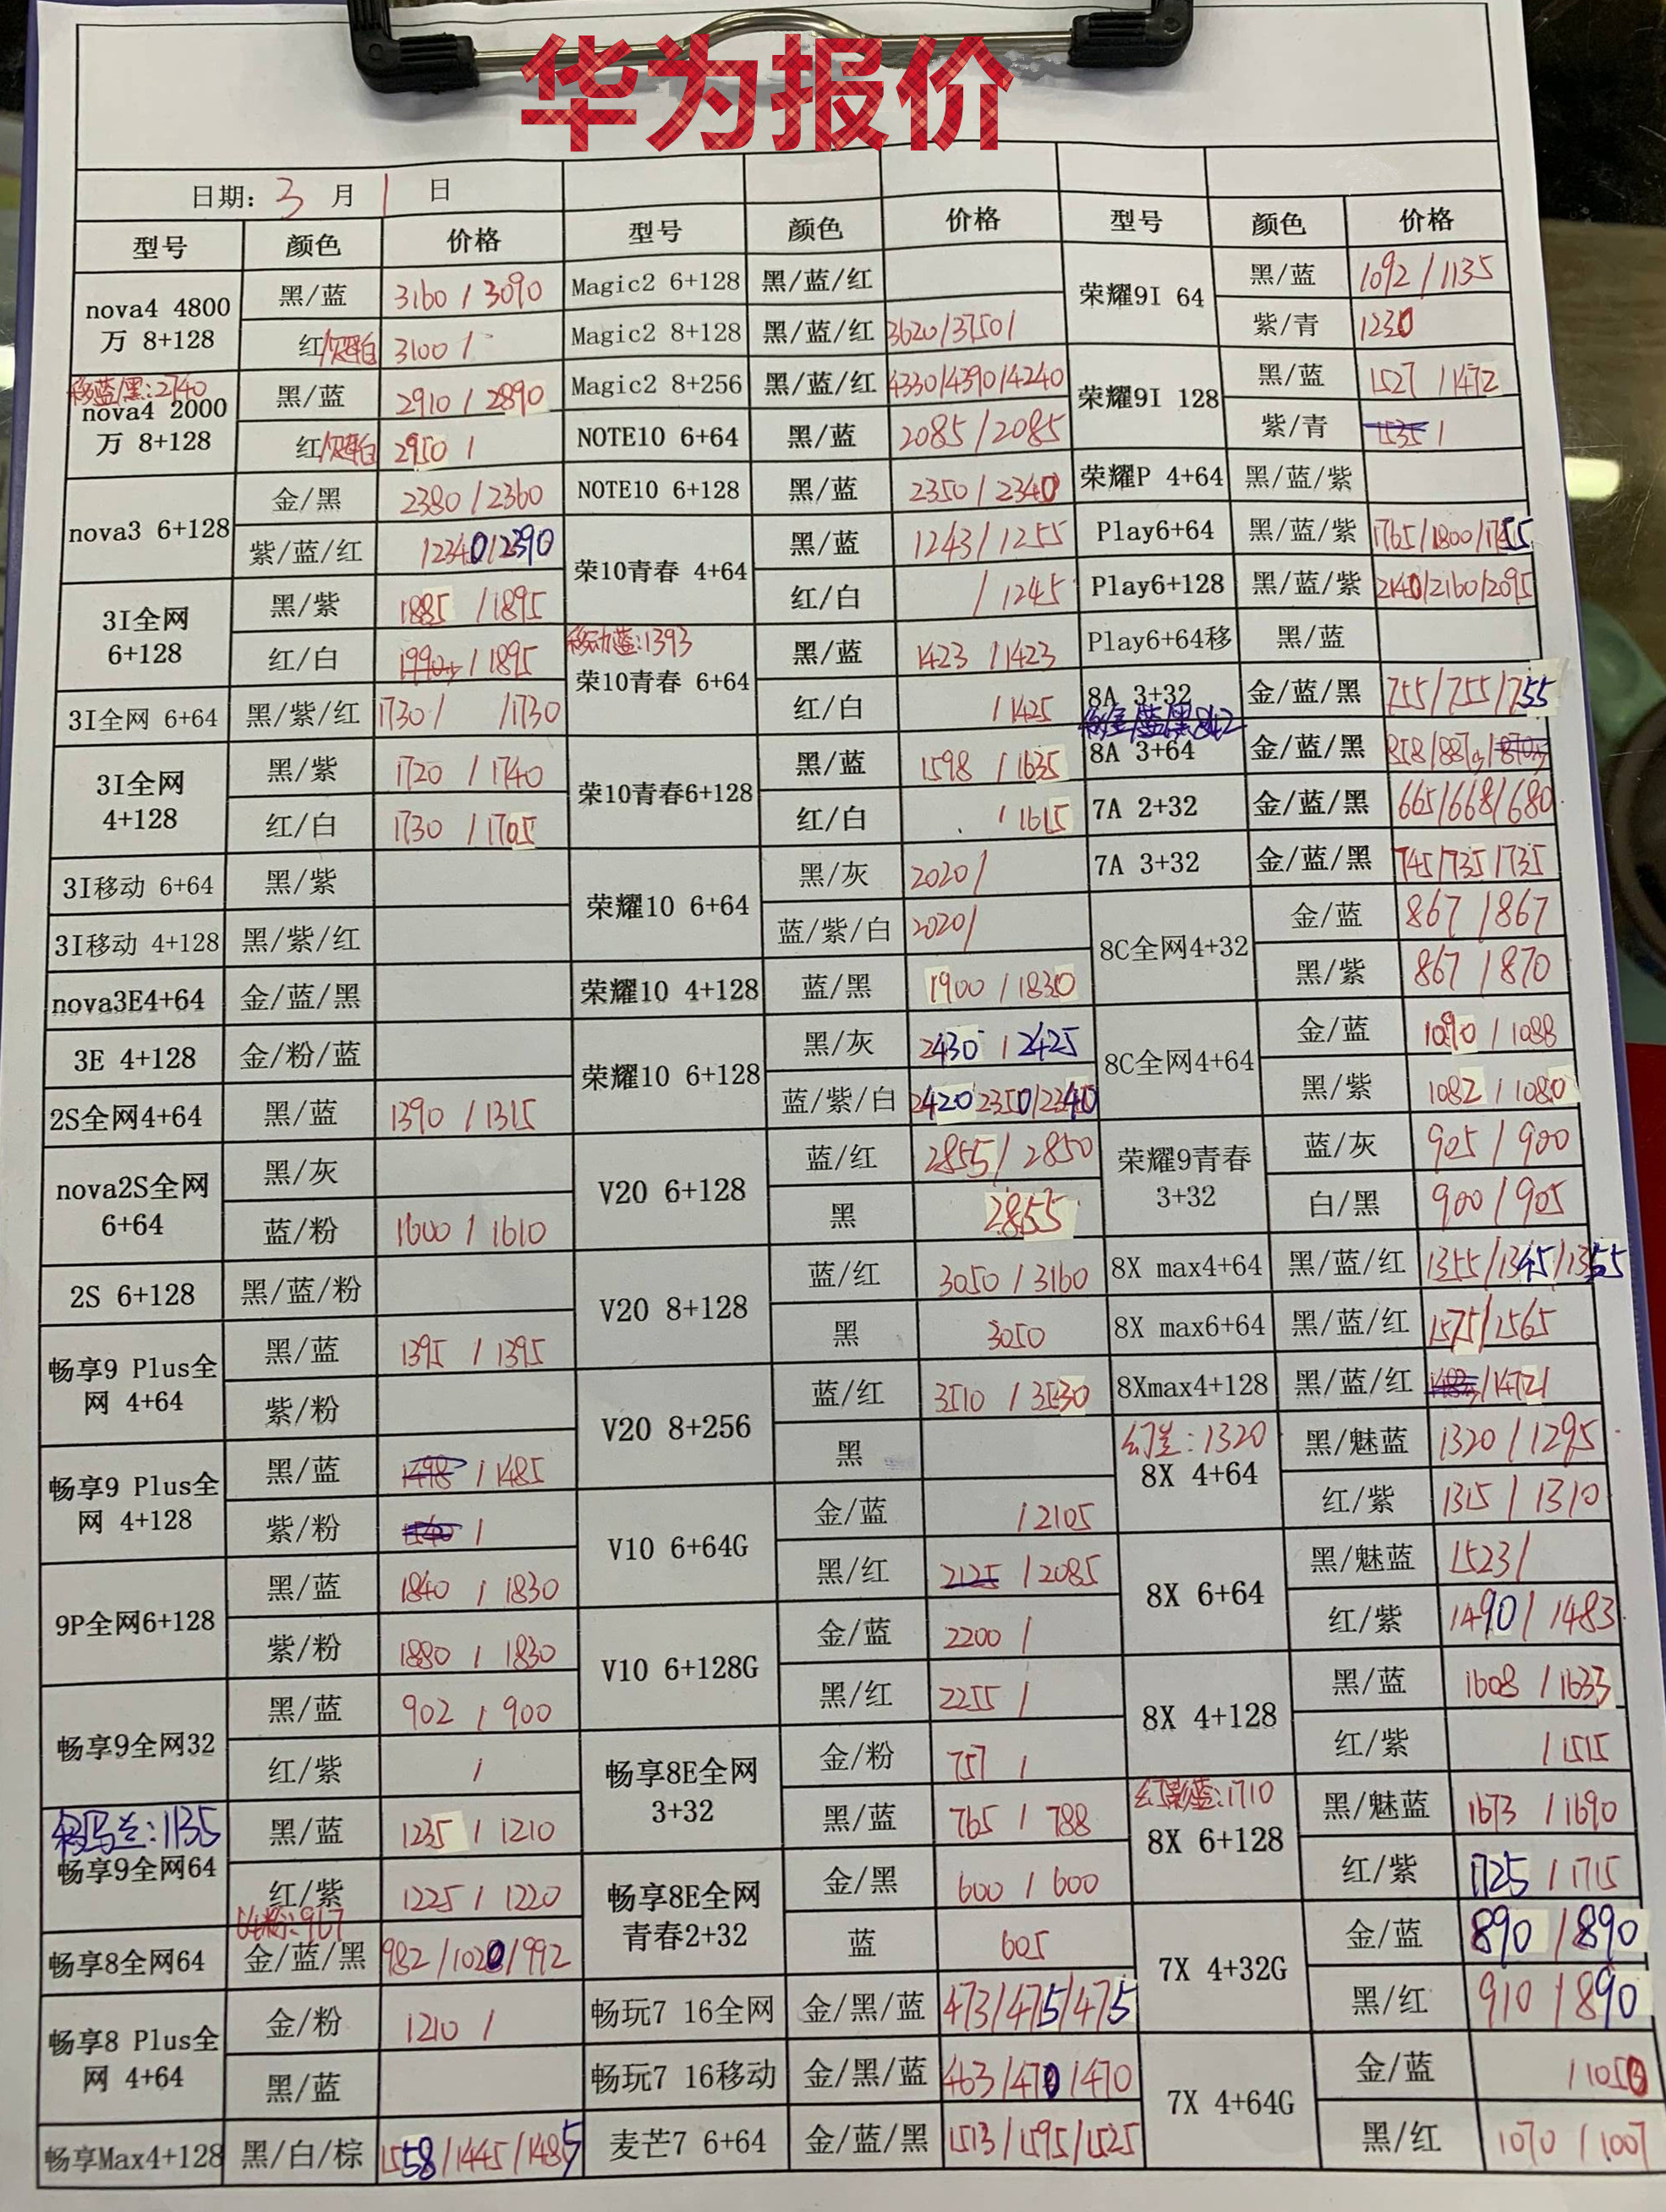 华为报价
日期: 3 月 1 日
型号 颜色 价格 型号 颜色 价格 型号 颜色 价格
nova4 4800
万 8+128
黑/蓝 3160 / 3090
红/贝母白 3100 /
移蓝/黑:2740
nova4 2000
万 8+128
黑/蓝 2910 / 2890
红/贝母白 2950 /
nova3 6+128
金/黑 2380 / 2360
紫/蓝/红 /2340/2390
3I全网
6+128
黑/紫 1885 / 1895
红/白 / 1895
3I全网 6+64 黑/紫/红 1730 / /1730
3I全网
4+128
黑/紫 1720 / 1740
红/白 1730 / 1705
3I移动 6+64 黑/紫
3I移动 4+128 黑/紫/红
nova3E4+64 金/蓝/黑
3E 4+128 金/粉/蓝
2S全网4+64 黑/蓝 1390 / 1315
nova2S全网
6+64
黑/灰
蓝/粉 1600 / 1610
2S 6+128 黑/蓝/粉
畅享9 Plus全
网 4+64
黑/蓝 1395 / 1395
紫/粉
畅享9 Plus全
网 4+128
黑/蓝 1498 / 1485
紫/粉 /
9P全网6+128
黑/蓝 1840 / 1830
紫/粉 1880 / 1830
畅享9全网32
黑/蓝 902 / 900
红/紫 /
:1135
畅享9全网64
黑/蓝 1235 / 1210
红/紫 1225 / 1220
粉:967
畅享8全网64 金/蓝/黑 982/1020/992
畅享8 Plus全
网 4+64
金/粉 1210 /
黑/蓝
畅享Max4+128 黑/白/棕 1558/1445/1485
Magic2 6+128 黑/蓝/红
Magic2 8+128 黑/蓝/红 3620/3750/
Magic2 8+256 黑/蓝/红 4330/4390/4240
NOTE10 6+64 黑/蓝 2085/2085
NOTE10 6+128 黑/蓝 2350/2340
荣10青春 4+64
黑/蓝 1243/1255
红/白 / 1245
移动蓝:1393
荣10青春 6+64
黑/蓝 1423 / 1423
红/白 / 1425
荣10青春6+128
黑/蓝 1598 / 1635
红/白 / 1615
荣耀10 6+64
黑/灰 2020/
蓝/紫/白 2020/
荣耀10 4+128 蓝/黑 1900 / 1830
荣耀10 6+128
黑/灰 2430 / 2425
蓝/紫/白 2420 2350/2340
V20 6+128
蓝/红 2855 / 2850
黑 2855
V20 8+128
蓝/红 3050 / 3160
黑 3050
V20 8+256
蓝/红 3510 / 3530
黑
V10 6+64G
金/蓝 / 2105
黑/红 2125 / 2085
V10 6+128G
金/蓝 2200 /
黑/红 2255 /
畅享8E全网
3+32
金/粉 757 /
黑/蓝 765 / 788
畅享8E全网
青春2+32
金/黑 600 / 600
蓝 605
畅玩7 16全网 金/黑/蓝 473/475/475
畅玩7 16移动 金/黑/蓝 463/470/470
麦芒7 6+64 金/蓝/黑 1513/1595/1525
荣耀9I 64
黑/蓝 1092 / 1135
紫/青 1230
荣耀9I 128
黑/蓝 1527 / 1472
紫/青 1535 /
荣耀P 4+64 黑/蓝/紫
Play6+64 黑/蓝/紫 1765/1800/1755
Play6+128 黑/蓝/紫 2140/2160/2095
Play6+64移 黑/蓝
8A 3+32 金/蓝/黑 755/755/755
移金/蓝/黑842
8A 3+64 金/蓝/黑 858/887
7A 2+32 金/蓝/黑 665/668/680
7A 3+32 金/蓝/黑 745/735/735
8C全网4+32
金/蓝 867 / 867
黑/紫 867 / 870
8C全网4+64
金/蓝 1090 / 1088
黑/紫 1082 / 1080
荣耀9青春
3+32
蓝/灰 905 / 900
白/黑 900 / 905
8X max4+64 黑/蓝/红 1355/1345/1355
8X max6+64 黑/蓝/红 1575/1565
8Xmax4+128 黑/蓝/红 /1472/
:1320
8X 4+64
黑/魅蓝 1320 / 1295
红/紫 1315 / 1310
8X 6+64
黑/魅蓝 1523/
红/紫 1490/ 1483
8X 4+128
黑/蓝 1608 / 1633
红/紫 / 1515
幻影蓝:1710
8X 6+128
黑/魅蓝 1673 / 1690
红/紫 1725 / 1715
7X 4+32G
金/蓝 890 / 890
黑/红 910 / 890
7X 4+64G
金/蓝 / 1050
黑/红 1070 / 1007